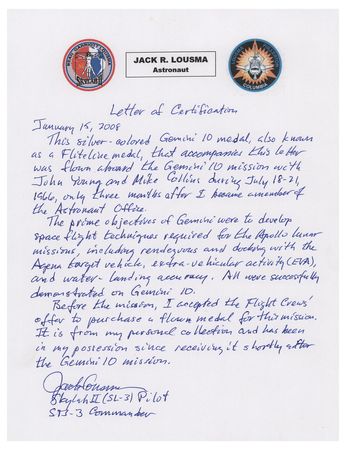 SKYLAB
JACK R. LOUSMA
Astronaut
COLUMBIA
Letter of Certification
January 15, 2008
This silver-colored Gemini 10 medal, also known
as a Fliteline medal, that accompanies this letter
was flown aboard the Gemini 10 mission with
John Young and Mike Collins during July 18-21,
1966, only three months after I became a member of
the Astronaut Office.
The prime objectives of Gemini were to develop
space flight techniques required for the Apollo lunar
missions, including rendezvous and docking with the
Agena target vehicle, extra-vehicular activity (EVA),
and water-landing accuracy. All were successfully
demonstrated on Gemini 10.
Before the mission, I accepted the Flight Crews'
offer to purchase a flown medal for this mission.
It is from my personal collection and has been
in my possession since receiving it shortly after
the Gemini 10 mission.
Jack Lousma
Skylab II (SL-3) Pilot
STS-3 Commander